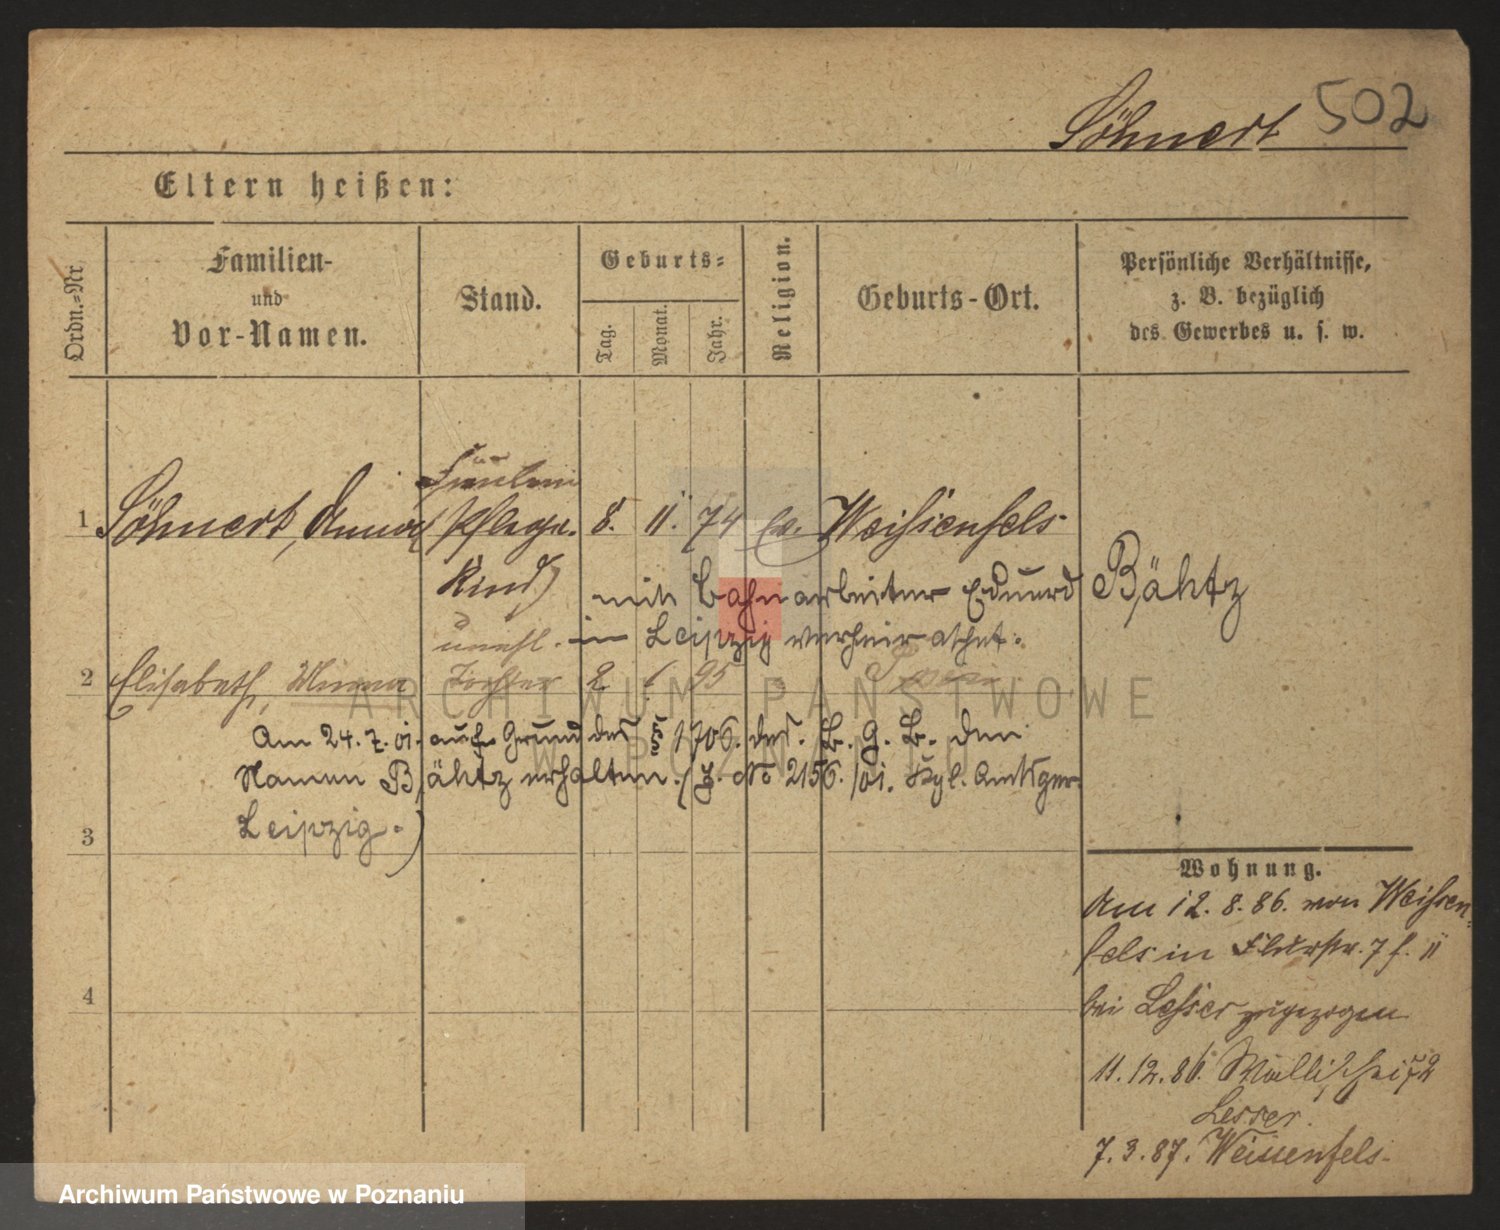 Söhnert 502
Eltern heißen:
Ordn.=Nr.
Familien-
und
Vor-Namen.
Stand.
Geburts=
Tag.
Monat.
Jahr.
Religion.
Geburts-Ort.
Persönliche Verhältnisse,
z. B. bezüglich
des Gewerbes u. s. w.
Fräulein
1 Söhnert, Anna (Pflege. 8. 11. 74 ev. Weißenfels
Kind)
mit Bahnarbeiter Eduard Bähtz
unehl. in Leipzig verheirathet.
2 Elisabeth, Minna Tochter 2 95 Posen
Am 24.7.01. auf Grund des § 1706. des. B. G. B. den
Namen Bähtz erhalten. (J. No 2156./01. Kgl. Amtsger.
3 Leipzig.)
4
Wohnung.
Am 12.8.86. von Weißen=
fels in Flurstr. 7 f. II
bei Lesser zugezogen
11.12.86. Wallischei 72
Lesser.
7.3.87. Weissenfels.
ARCHIWUM PAŃSTWOWE
W POZNANIU
Archiwum Państwowe w Poznaniu